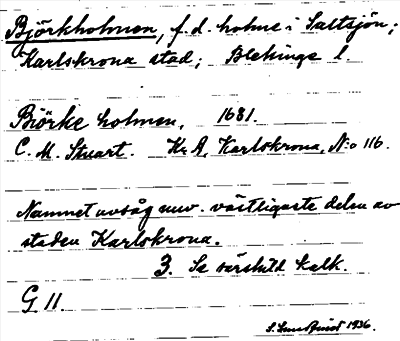 Björkholmen, f.d. holme i Saltsjön;
Karlskrona stad; Blekinge l.
Biörke holmen. 1681.
C. M. Stuart. Kr A, Karlskrona, N:o 116.
Namnet avsåg nuv. västligaste delen av
staden Karlskrona.
3. Se särskild kalk.
G 11.
1936.